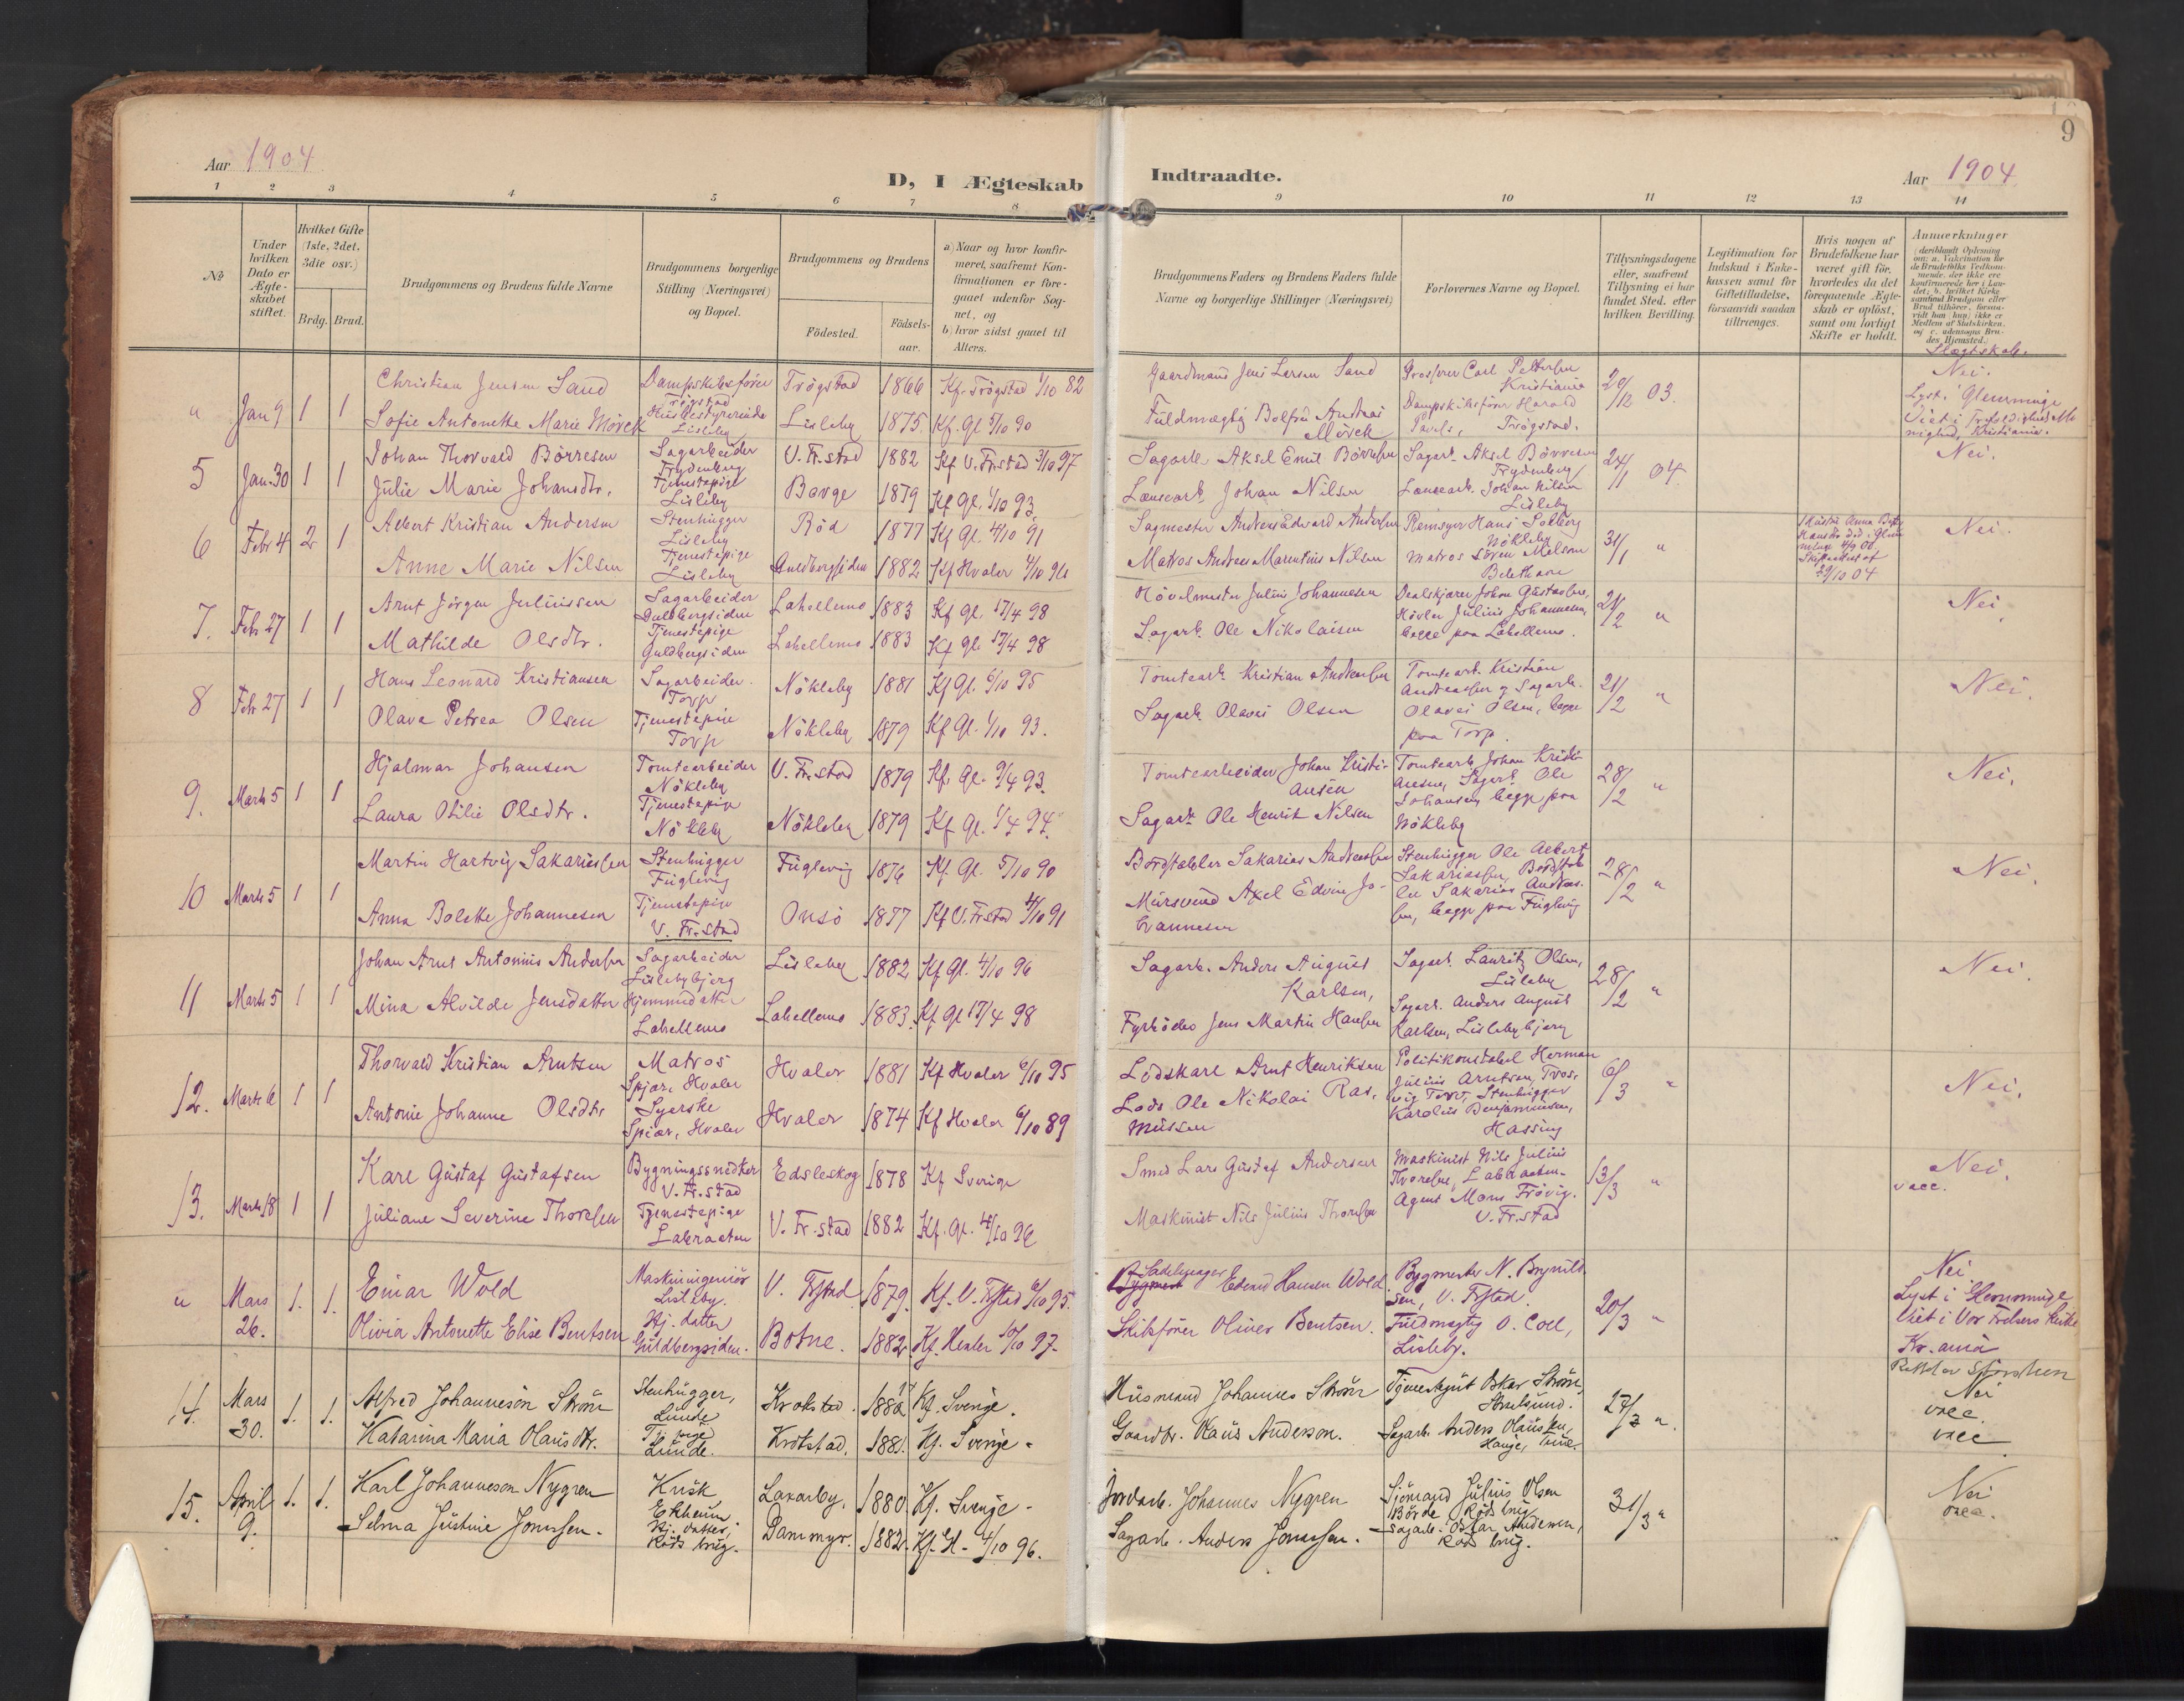 9
Aar 1904
D, I Ægteskab Indtraadte.
Aar 1904
1 2 3 4 5 6 7 8 9 10 11 12 13 14
No
Under hvilken Dato er Ægteskabet stiftet.
Hvilket Gifte (1ste, 2det, 3die osv.)
Brdg. Brud.
Brudgommens og Brudens fulde Navne
Brudgommens borgerlige Stilling (Næringsvei) og Bopæl.
Brudgommens og Brudens
Födested. Födselsaar.
a) Naar og hvor konfirmeret, saafremt Konfirmationen er foregaaet udenfor Sognet, og
b) hvor sidst gaaet til Alters.
Brudgommens Faders og Brudens Faders fulde Navne og borgerlige Stillinger (Næringsvei)
Forlovernes Navne og Bopæl.
Tillysningsdagene eller, saafremt Tillysning ei har fundet Sted, efter hvilken Bevilling.
Legitimation for Indskud i Enkekassen samt for Giftetilladelse, forsaavidt saadan tiltrænges.
Hvis nogen af Brudefolkene har været gift för, hvorledes da det foregaaende Ægteskab er oplöst, samt om lovligt Skifte er holdt.
Anmærkninger
Slægtskab.
" Jan 9 1 1 Christian Jensen Sand Dampskibsförer Trögstad Trögstad 1866 Kf. Trögstad 1/10 82 Gaardmand Jens Larsen Sand Grosserer Carl Pettersen Kristiania 20/12 03. Nei.
Sofie Antonette Marie Mörck Husbestyrerinde Lisleby Lisleby 1875. Kf. Gl. 5/10 90 Fuldmægtig Bolfred Andreas Mörck Dampskibsförer Harald Pavels, Trögstad. Lyst i Glemminge
Viet i Trefoldigheds Menighed, Kristiania.
5 Jan. 30 1 1 Johan Thorvald Börresen Sagarbeider Trydenberg V. Fr.stad 1882 Kf V. Fr.stad 3/10 97 Sagarb. Aksel Emil Börresen Sagarb. Aksel Börresen Trydenberg 24/1 04. Nei.
Julie Marie Johansdtr. Tjenestepige Lisleby Borge 1879 Kf Gl. 1/10 93. Lænsearb. Johan Nilsen Lænsearb. Johan Nilsen Lisleby
6 Febr 4 2 1 Albert Kristian Andersen Stenhugger Lisleby Röd 1877 Kf Gl. 4/10 91 Sagmester Andreas Edvard Andersen Remsyer Hans Solberg Nökleby 31/1 " Nei.
Anne Marie Nilsen Tjenestepige Lisleby Guldbergsiden 1882 Kf Hvaler 4/10 96 Matros Andreas Marentius Nilsen Matros Sören Nilsen
7. Febr 27 1 1 Arnt Jörgen Juliussen Sagarbeider Guldbergsiden Lahellemo 1883 Kf Gl. 17/4 98 Hövelmester Julius Johannesen Dealskjærer Johan Gustavsen, Hövler Julius Johannesen, begge paa Lahellemo. 21/2 " Nei
Mathilde Olsdtr. Tjenestepige Guldbergsiden Lahellemo 1883 Kf Gl. 17/4 98 Sagarb. Ole Nikolaisen
8 Febr 27 1 1 Hans Leonard Kristiansen Sagarbeider. Torp Nökleby 1881 Kf Gl. 6/10 95 Tomtearb. Kristian Andreassen Tomtearb. Kristian Andreassen og Sagarb. Olavus Olsen, begge paa Torp. 21/2 " Nei.
Olava Petrea Olsen Tjenestepige Torp Nökleby 1879 Kf Gl. 1/10 93. Sagarb. Olaves Olsen
9. Marts 5 1 1 Hjalmar Johansen Tomtearbeider Nökleby V. Fr.stad 1879 Kf. Gl. 9/4 93. Tomtearbeider Johan Kristiansen Tomtearb. Johan Kristiansen, Sagarb. Ole Johansen, begge paa Nökleby 28/2 " Nei.
Laura Otilie Olsdtr. Tjenestepige Nökleby Nökleby 1879 Kf Gl. 1/4 94. Sagarb. Ole Henrik Nilsen
10 Marts 5 1 1 Martin Hartvig Sakariassen Stenhugger Fuglevig Fuglevig 1876 Kf. Gl. 5/10 90 Bordstabler Sakarias Andreassen Stenhugger Ole Albert Sakariassen, Bordstabler Sakarias Andreassen, begge paa Fuglevig 28/2 " Nei.
Anna Bolette Johannesen Tjenestepige V. Fr.stad Onsö 1877 Kf V. Fr.stad 4/10 91 Mursvend Axel Edvin Johannesen
11 Marts 5 1 1 Johan Arnt Antonius Andersen Sagarbeider Lislebybjerg Lisleby 1882 Kf Gl. 4/10 96 Sagarb. Anders August Karlsen, Sagarb. Lauritz Olsen, Lisleby 28/2 " Nei.
Mina Alvilde Jensdatter Hjemmedatter Lahellemo Lahellemo 1883. Kf Gl 17/4 98 Fyrböder Jens Martin Hansen Sagarb. Anders August Karlsen, Lislebybjerg
12. Marts 6 1 1 Thorvald Kristian Arntsen Matros Spjær, Hvaler Hvaler 1881 Kf Hvaler 6/10 95 Lodskarl Arnt Henriksen Politikonstabel Herman Julius Arntsen, 6/3 " Nei.
Antonie Johanne Olsdtr Syerske Spjær, Hvaler Hvaler 1874 Kf Hvaler 6/10 89 Lods Ole Nikolai Rasmussen Stenhugger Karolius Benjaminsen, Hassing
13. Marts 18 1 1 Karl Gustaf Gustafsen Bygningssnedker V. Fr.stad Edsleskog 1878 Kf Sverige Smed Lars Gustaf Andersen Maskinist Nils Julius Thoresen, Labraaten. 13/3 " Nei. vacc.
Juliane Severine Thoresen Tjenestepige Labraaten V. Fr.stad 1882 Kf. Gl. 4/10 96 Maskinist Nils Julius Thoresen Agent Mons Frövig. V. Fr.stad
" Mars 26. 1. 1. Einar Wold Maskiningeniör Lisleby. V. Frstad 1879. Kf. V. Frstad 6/10 95. Sadelmager Edvard Hansen Wold. Bygmester N. Brynildsen, V. Frstad. 20/3 " Nei.
Olivia Antonette Elise Bentsen Hj. datter Guldbergsiden. Botne. 1882. Kf. Hvaler 10/10 97. Skibsförer Oliver Bentsen. Fuldmægtig O. Coll, Lisleby. Lyst i Glemminge
Viet i Vor Frelsers Kirke Kr.ania
14. Mars 30. 1. 1. Alfred Johanneson Ström Stenhugger, Lunde Krokstad. 1882 Kf. Sverige. Husmand Johannes Ström Tjenestegut Oskar Ström, 27/3 ". Nei vacc.
Katarina Maria Olausdtr. Tj. pige Lunde. Krokstad. 1881. Kf. Sverige. Gaardbr. Olaus Anderson. Sagarb. Anders Olaussen, Hauge, Tune. vacc
15. April 9. 1. 1. Karl Johanneson Nygren Kusk Ekheim. Laxarby. 1880. Kf. Sverige. Jordarb. Johannes Nygren Sjömand Julius Olsen 31/3 " Nei vacc.
Selma Justine Jonassen. Hj. datter, Röds brug. Dammyr. 1882. Kf. Gl. 4/10 96. Sagarb. Anders Jonassen. Sagarb. Oskar Andersen, Röds brug.